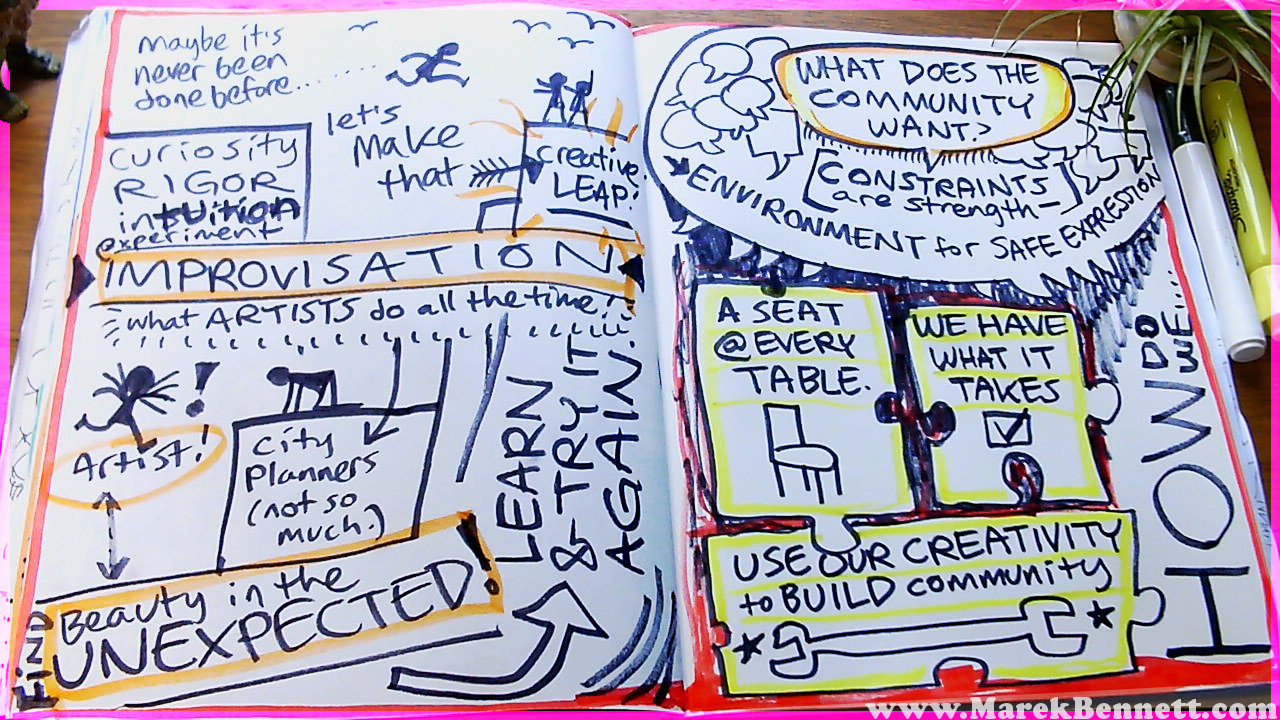 Maybe it's
never been
done before.........
let's
Make
that
Creative
LEAP!
Curiosity
RIGOR
intuition
experiment
IMPROVISATION
what ARTISTS do all the time!
Artist!
City
Planners
(not so
much.)
LEARN
& TRY IT
AGAIN.
FIND
Beauty in the
UNEXPECTED!
WHAT DOES THE
COMMUNITY
WANT?
CONSTRAINTS
are strength
ENVIRONMENT for SAFE EXPRESSION
HOW DO
WE....
A SEAT
@ EVERY
TABLE.
WE HAVE
WHAT IT
TAKES
USE OUR CREATIVITY
to BUILD community
www.MarekBennett.com